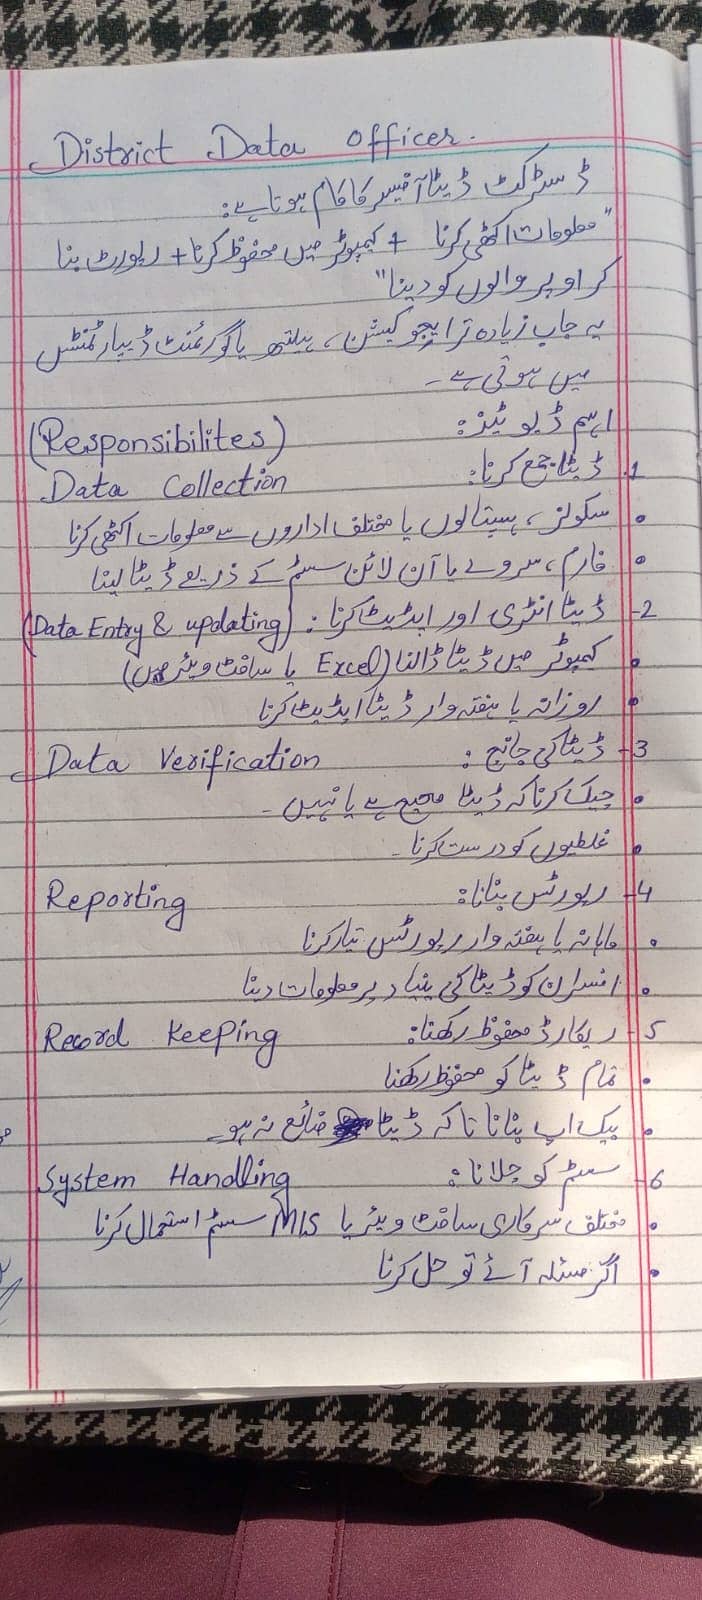 District Data Officer.
ڈسٹرکٹ ڈیٹا آفیسر کا کام ہوتا ہے:
"معلومات اکٹھی کرنا + کمپیوٹر میں محفوظ کرنا + رپورٹ بنا
کر اوپر والوں کو دینا"
یہ جاب زیادہ تر ایجوکیشن، ہیلتھ یا گورنمنٹ ڈیپارٹمنٹس
میں ہوتی ہے۔
اہم ڈیوٹیز: (Responsibilites)
1. ڈیٹا جمع کرنا: Data Collection
• سکولز، ہسپتالوں یا مختلف اداروں سے معلومات اکٹھی کرنا
• فارم، سروے یا آن لائن سسٹم کے ذریعے ڈیٹا لینا
2- ڈیٹا انٹری اور اپڈیٹ کرنا: (Data Entry & updating)
• کمپیوٹر میں ڈیٹا ڈالنا (Excel یا سافٹ ویئر میں)
• روزانہ یا ہفتہ وار ڈیٹا اپڈیٹ کرنا
3- ڈیٹا کی جانچ: Data Verification
• چیک کرنا کہ ڈیٹا صحیح ہے یا نہیں۔
• غلطیوں کو درست کرنا۔
4- رپورٹس بنانا: Reporting
• ماہانہ یا ہفتہ وار رپورٹس تیار کرنا
• افسران کو ڈیٹا کی بنیاد پر معلومات دینا
5- ریکارڈ محفوظ رکھنا: Record Keeping
• تمام ڈیٹا کو محفوظ رکھنا
• بیک اپ بنانا تاکہ ڈیٹا ضائع نہ ہو۔
6- سسٹم کو چلانا: System Handling
• مختلف سرکاری سافٹ ویئر یا MIS سسٹم استعمال کرنا
• اگر مسئلہ آئے تو حل کرنا